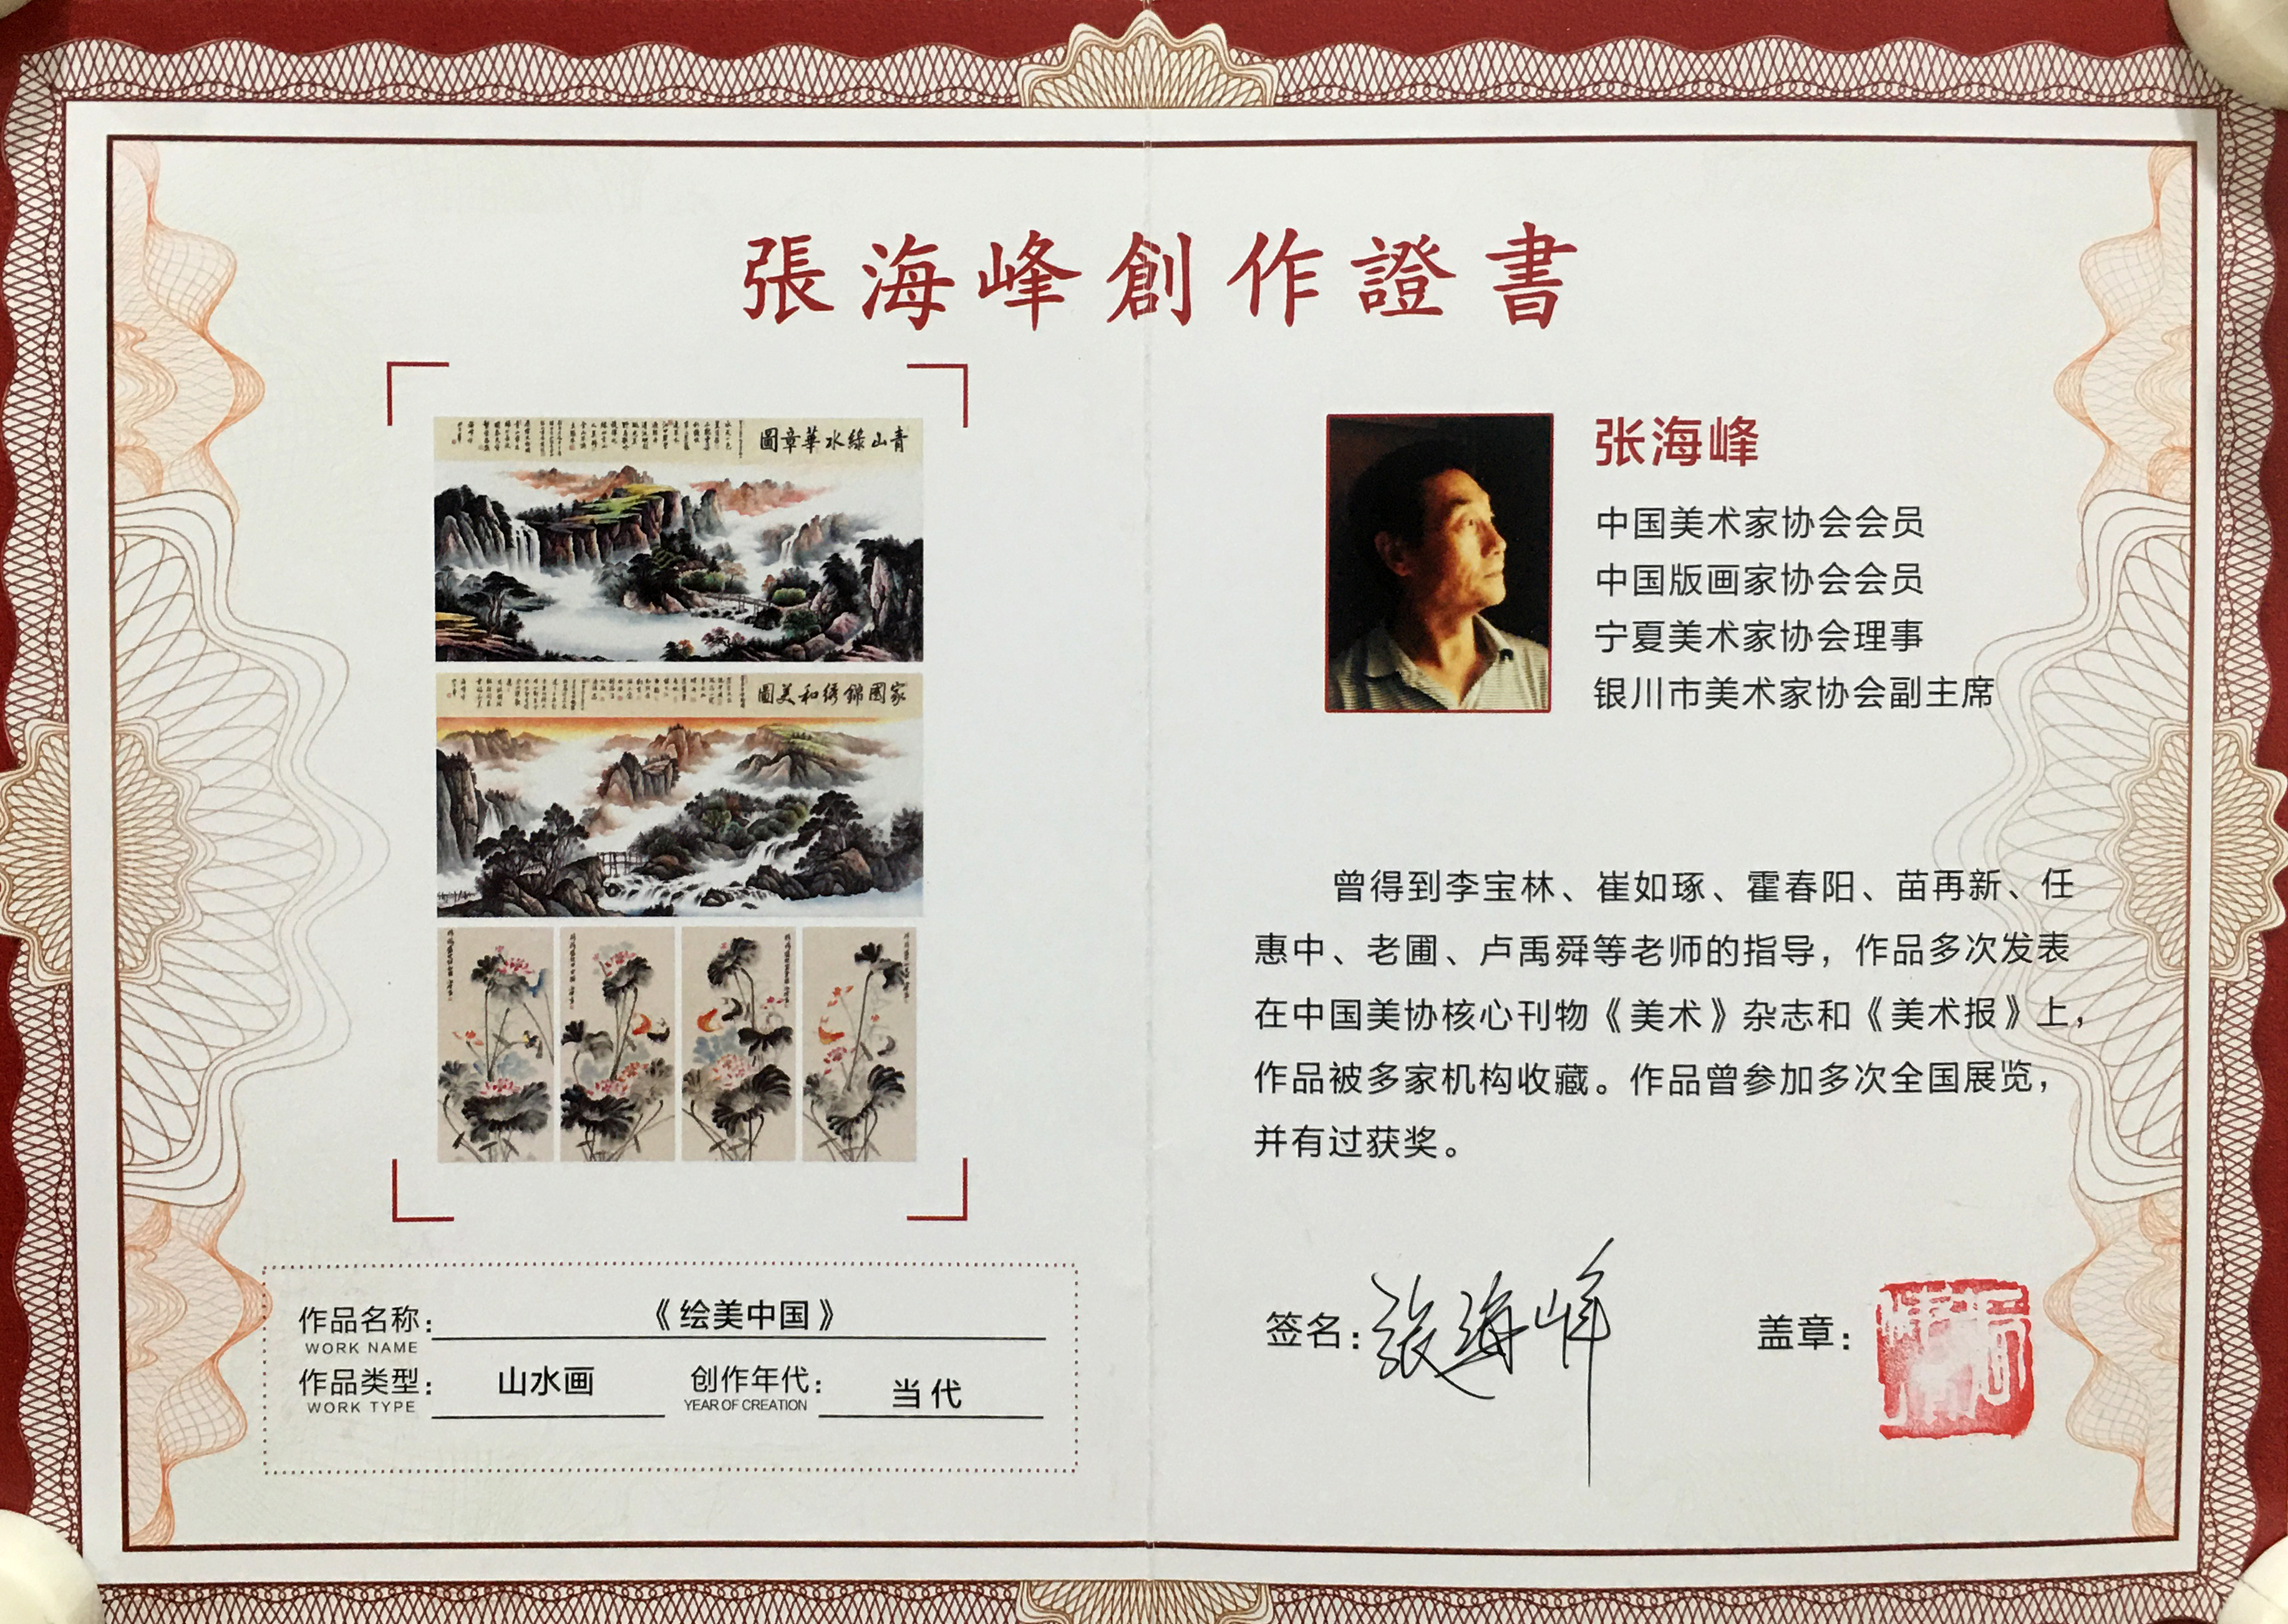 張海峰創作證書
青山綠水華章圖
家國錦綉和美圖
作品名称：《绘美中国》
WORK NAME
作品类型：山水画 创作年代：当代
WORK TYPE YEAR OF CREATION
张海峰
中国美术家协会会员
中国版画家协会会员
宁夏美术家协会理事
银川市美术家协会副主席
曾得到李宝林、崔如琢、霍春阳、苗再新、任
惠中、老圃、卢禹舜等老师的指导，作品多次发表
在中国美协核心刊物《美术》杂志和《美术报》上，
作品被多家机构收藏。作品曾参加多次全国展览，
并有过获奖。
签名：张海峰 盖章：